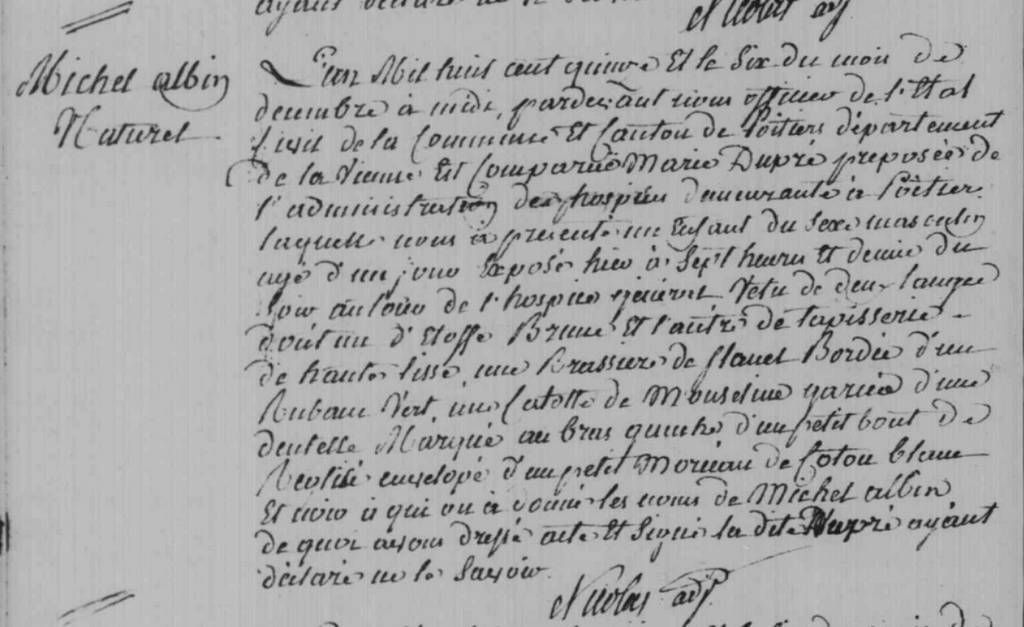 Nicolas adj
Michel albin
Naturel
L'an Mil huit cent quinze Et le Six du mois de
decembre à midi, pardevant nous officier de l'Etat
Civil de la Commune Et Canton de Poitiers département
de la Vienne Est Comparue Marie Dupré preposée de
l'administration des hospices demeurante à Poitiers
laquelle nous à présenté un Enfant du Sexe masculin
agé d'un jour Exposé hier à Sept heures Et demie du
soir au tour de l'hospice général Vetu de deux langes
dont un d'Etoffe Brune Et l'autre de tapisserie
de haute lisse, une Brassiere de flanel Bordée d'un
Rubanc Vert, une Calotte de Mouseline garnie d'une
dentelle Marqué au bras gauche d'un petit bout de
Reglisse envelopé d'un petit Morceau de Coton blanc
Et noir à qui on à donné les noms de Michel albin
de quoi avons dressé acte Et Signé la dite Dupré ayant
déclaré ne le Savoir
Nicolas adj